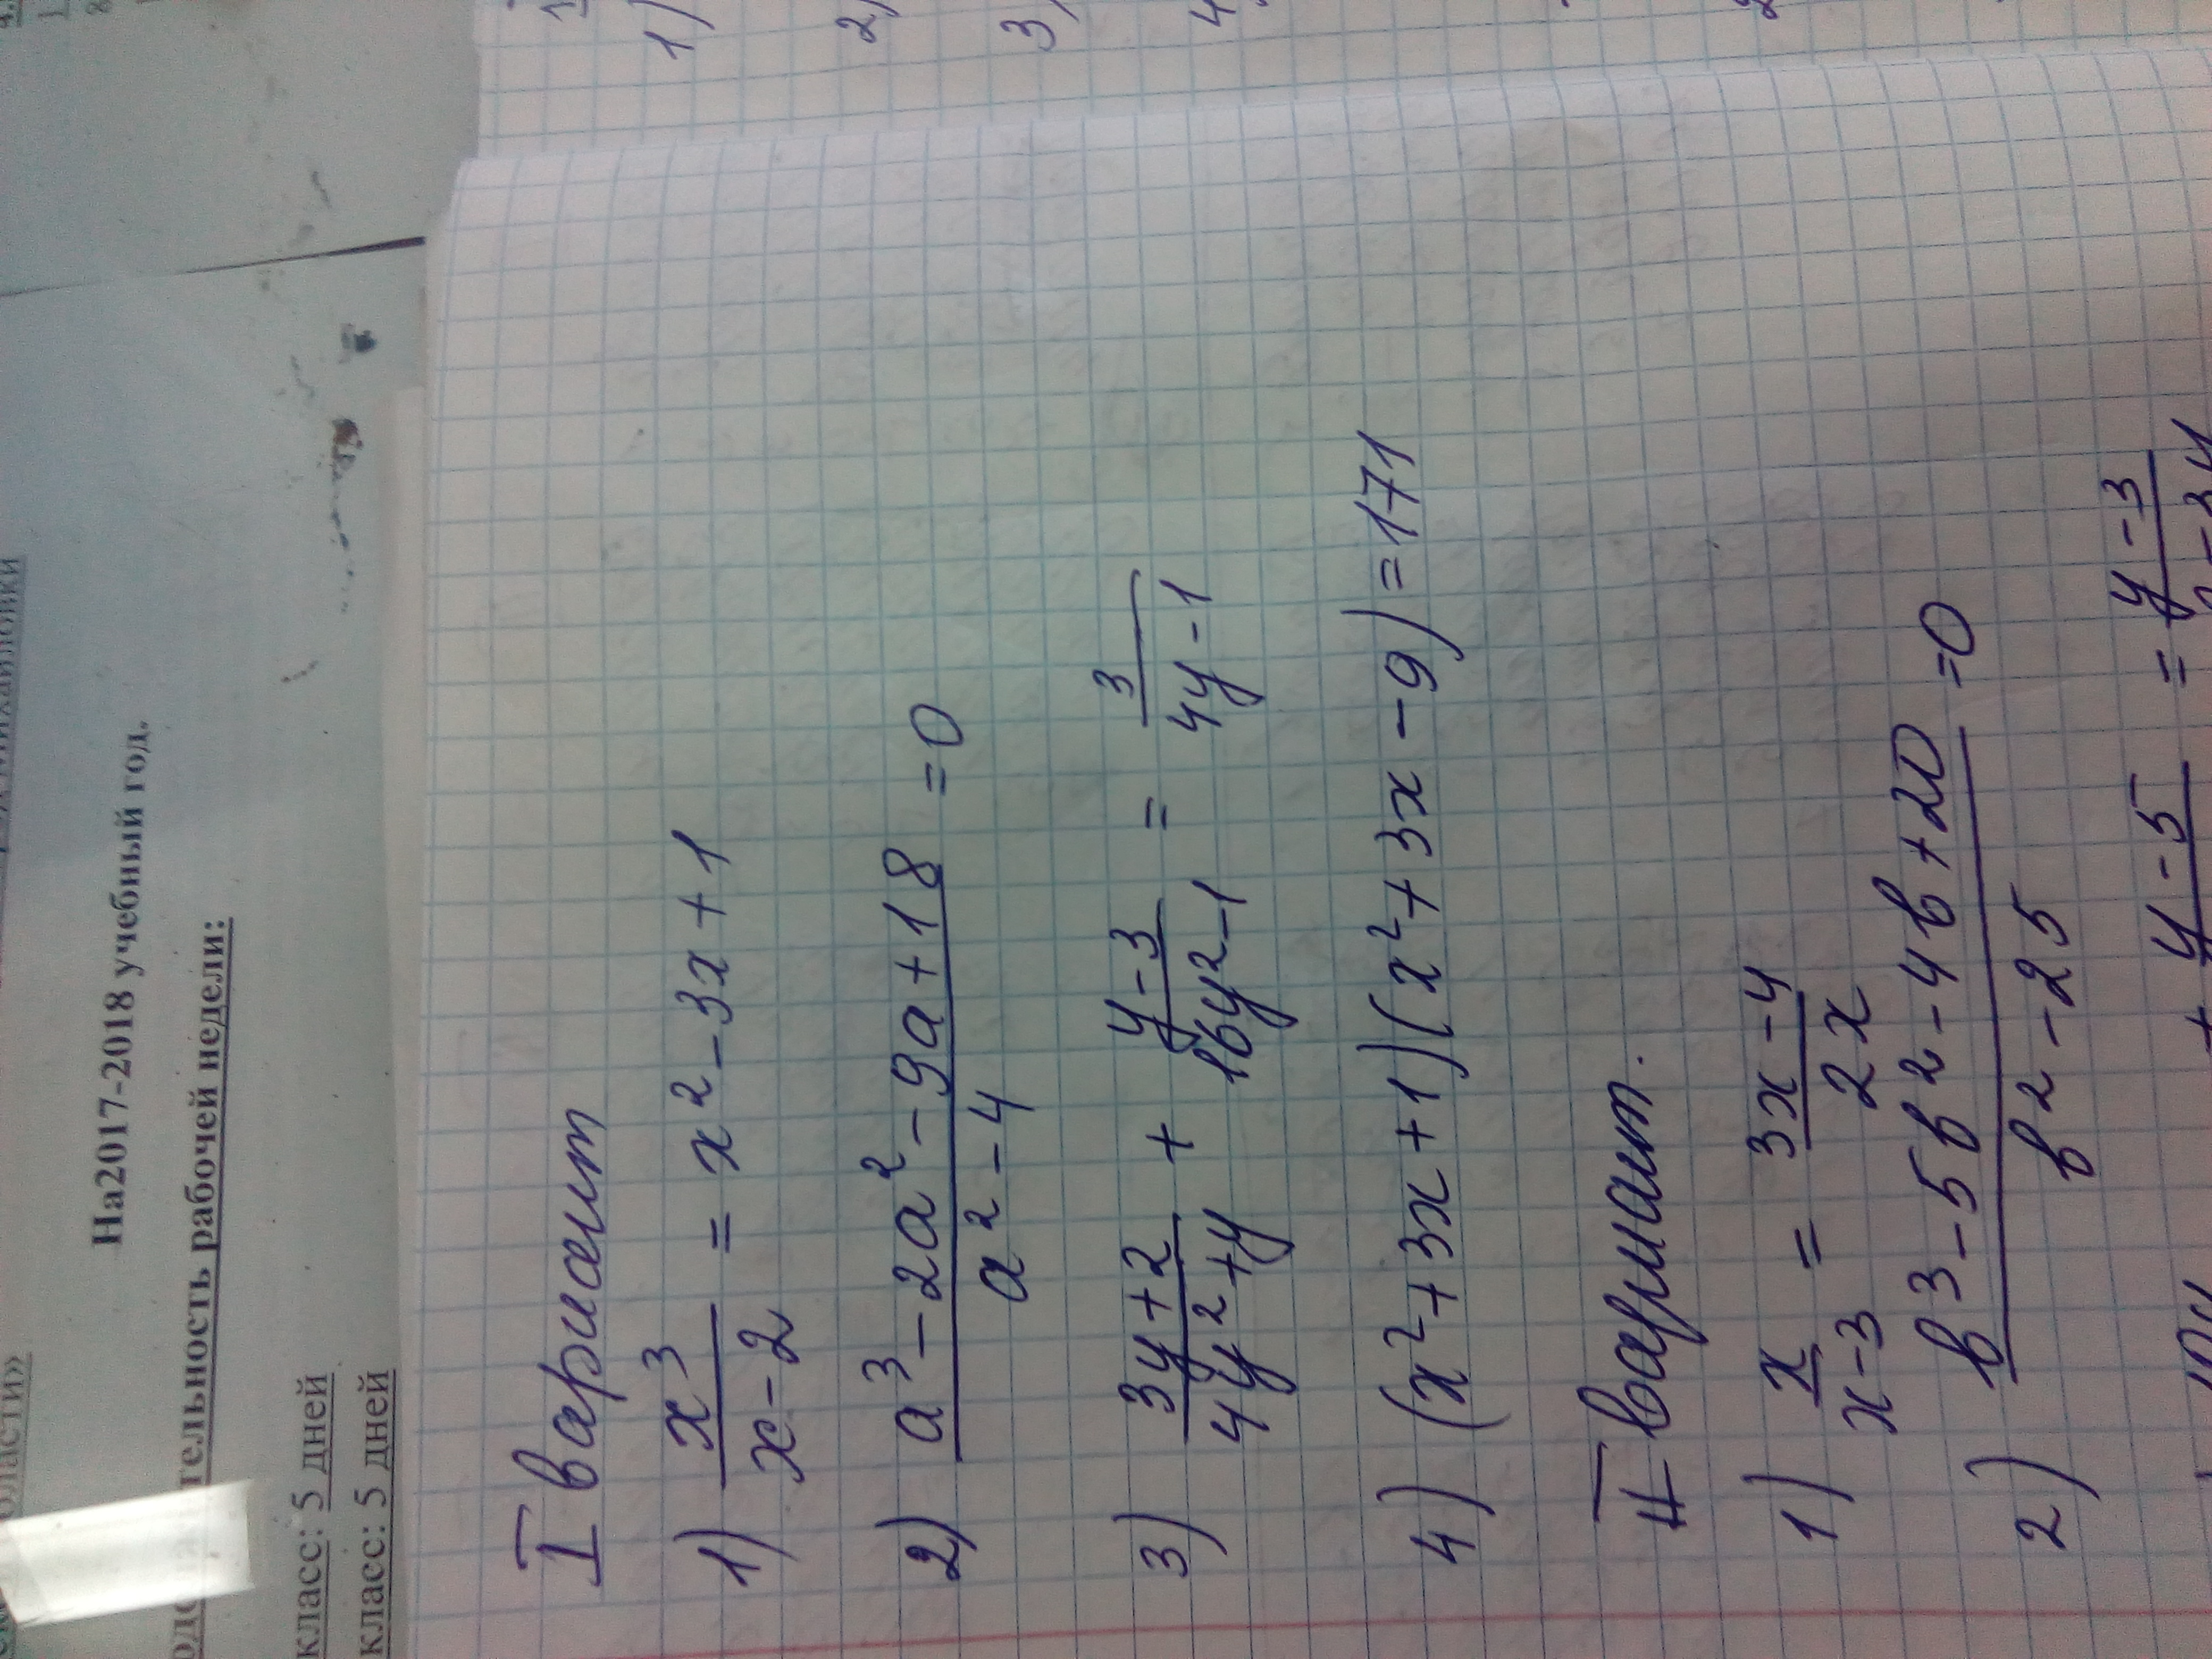 На2017-2018 учебный год.
тельность рабочей недели:
класс: 5 дней
класс: 5 дней
1)
2)
3)
4
I вариант
1) x³/(x-2) = x² - 3x + 1
2) (a³ - 2a² - 9a + 18)/(a² - 4) = 0
3) (3y+2)/(4y²+y) + (y-3)/(16y²-1) = 3/(4y-1)
4) (x² + 3x + 1)(x² + 3x - 9) = 171
II вариант.
1) x/(x-3) = (3x-4)/2x
2) (b³ - 5b² - 4b + 20)/(b² - 25) = 0
+ y-5 = y-3